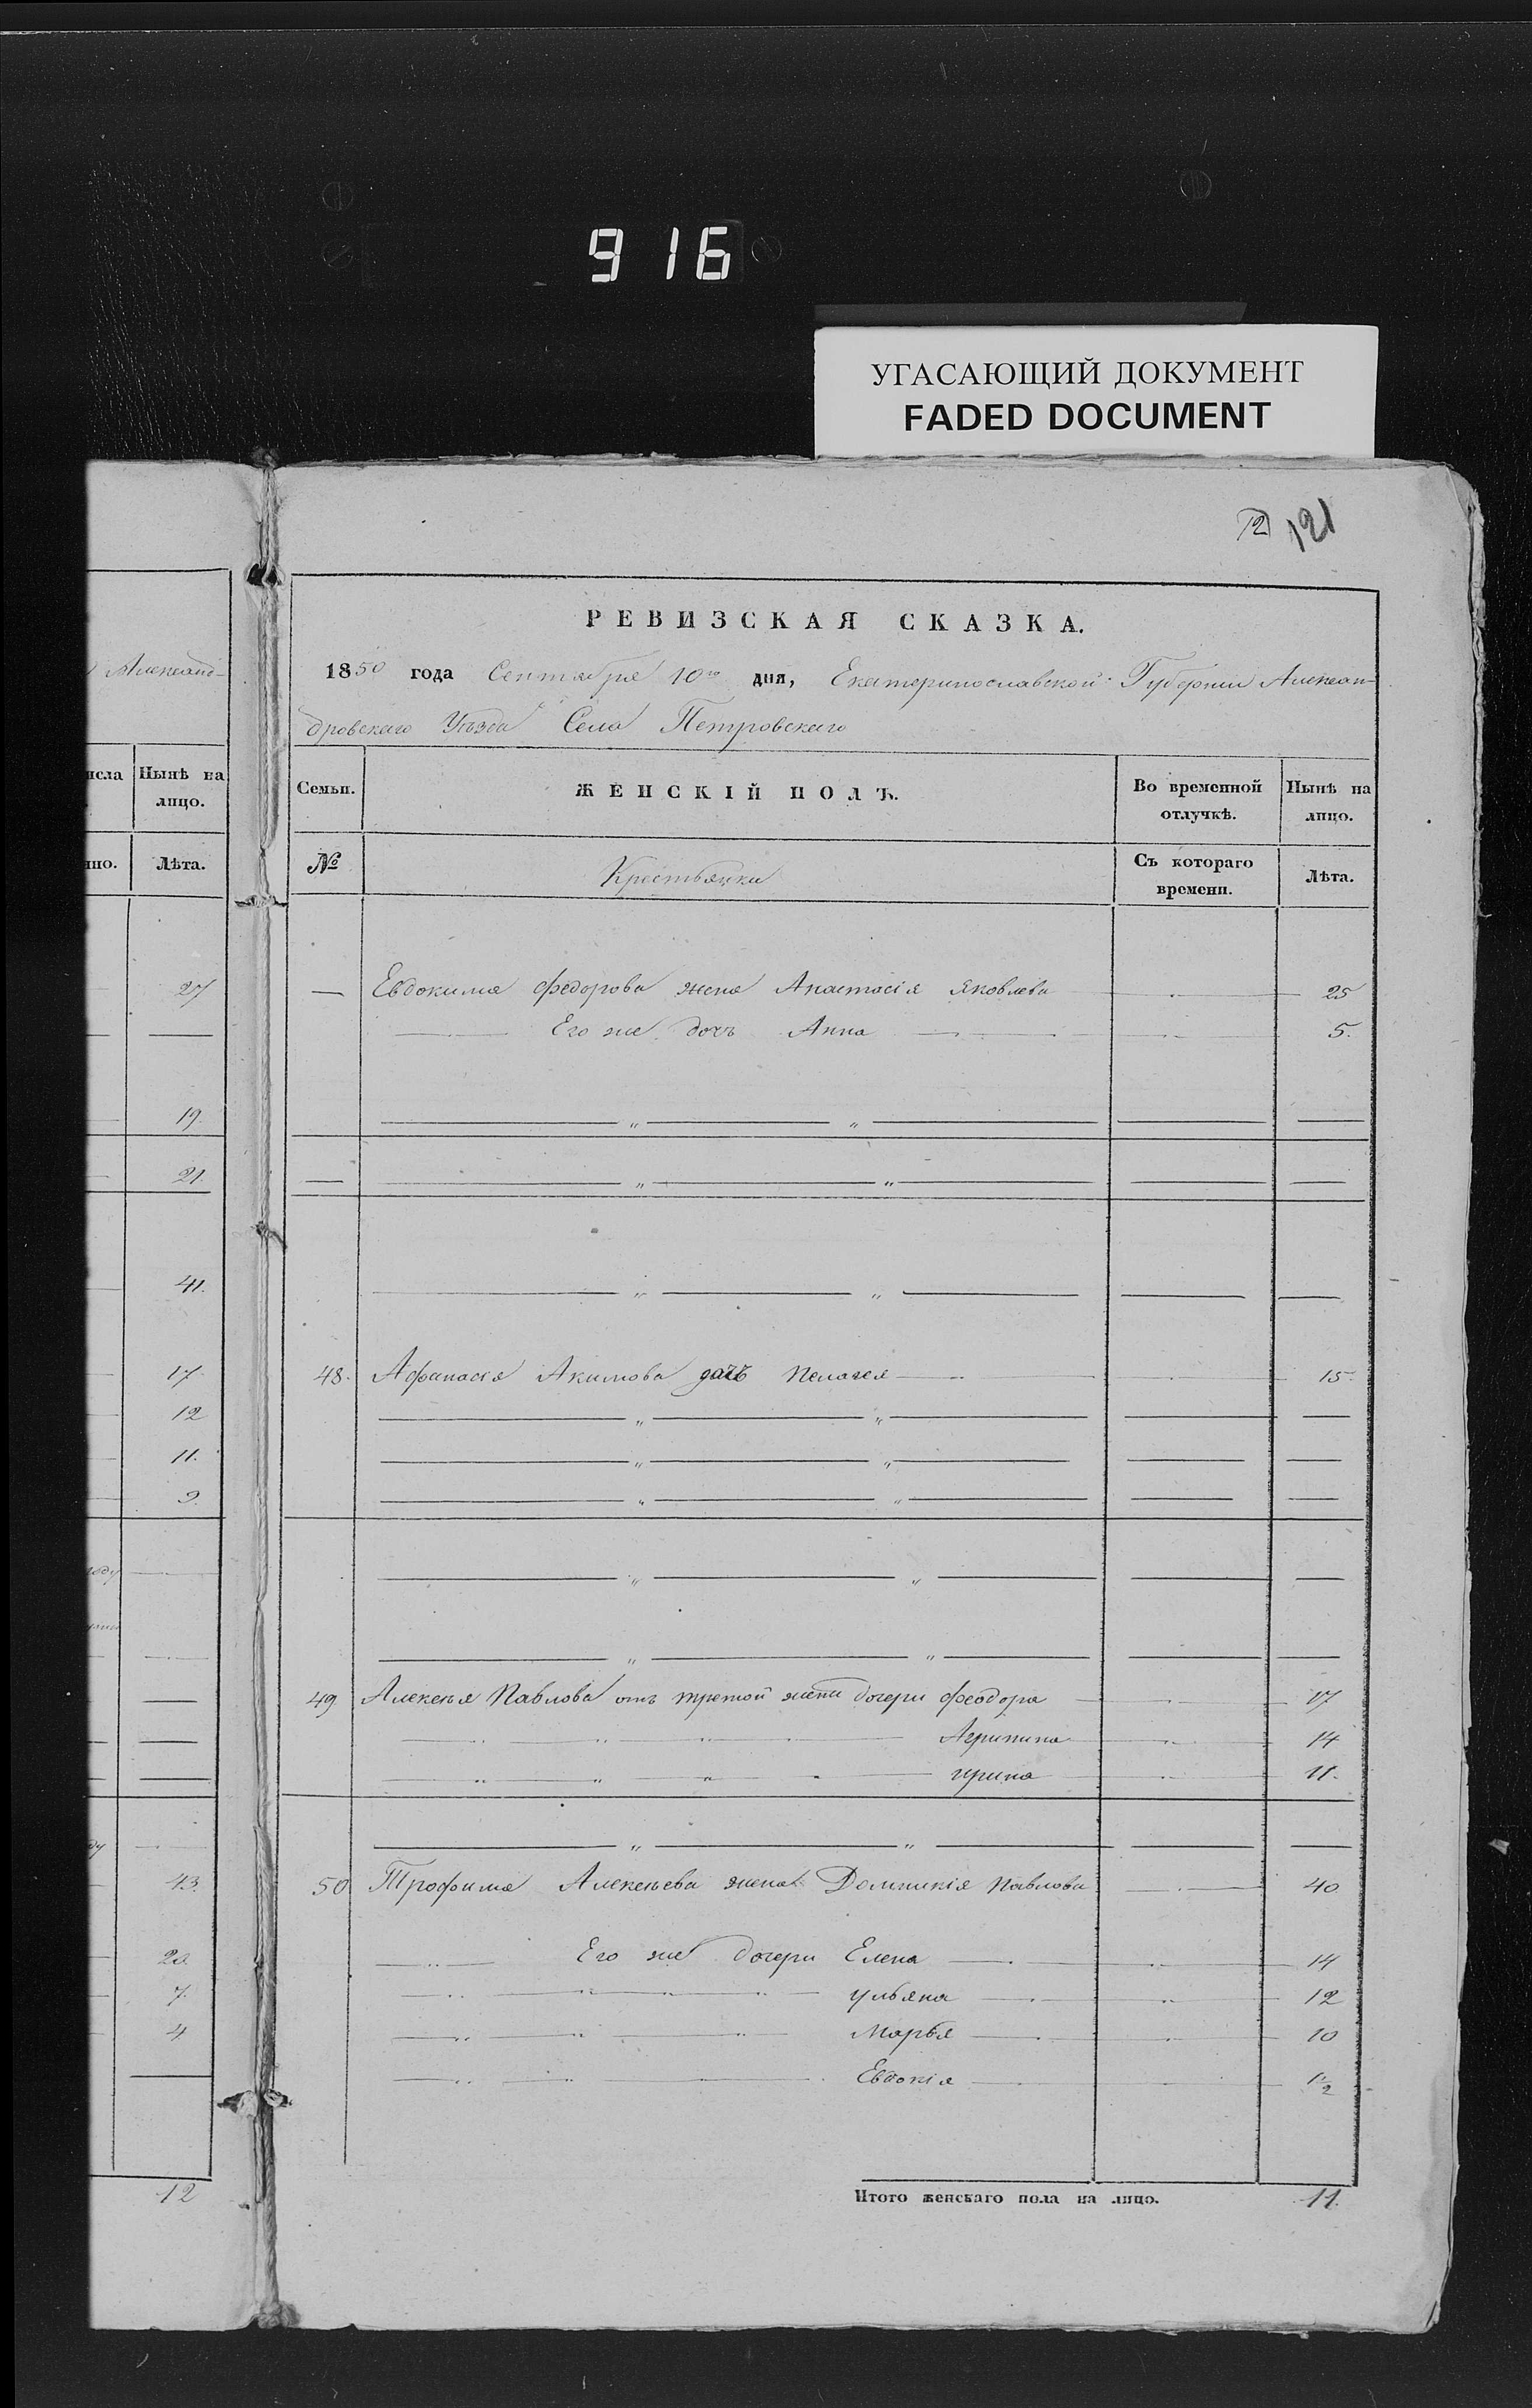 916
УГАСАЮЩИЙ ДОКУМЕНТ
FADED DOCUMENT
121
Александ-
Нынѣ на
лицо.
Лѣта.
27
19.
21.
41.
17.
12
11.
9.
43.
20.
7.
4
12
РЕВИЗСКАЯ СКАЗКА.
1850 года Сентября 10го дня, Екатеринославской Губернии Алексан-
дровскаго Уѣзда Села Петровскаго
Семьи. ЖЕНСКІЙ ПОЛЪ. Во временной отлучкѣ. Нынѣ на лицо.
№ Крестьянки Съ котораго времени. Лѣта.
Евдокима Федорова жена Анастасія Яковлева 25
Его же дочь Анна 5.
48. Афанасія Акимова дочь Пелагея 15.
49 Алексѣя Павлова отъ третой жены дочери Феодора 17
Агрипина 14
Ирина 11.
50 Трофима Алексѣева жена Домникія Павлова 40
Его же дочери Елена 14
Ульяна 12
Марья 10
Евдокія 1/2
Итого женскаго пола на лицо. 11.